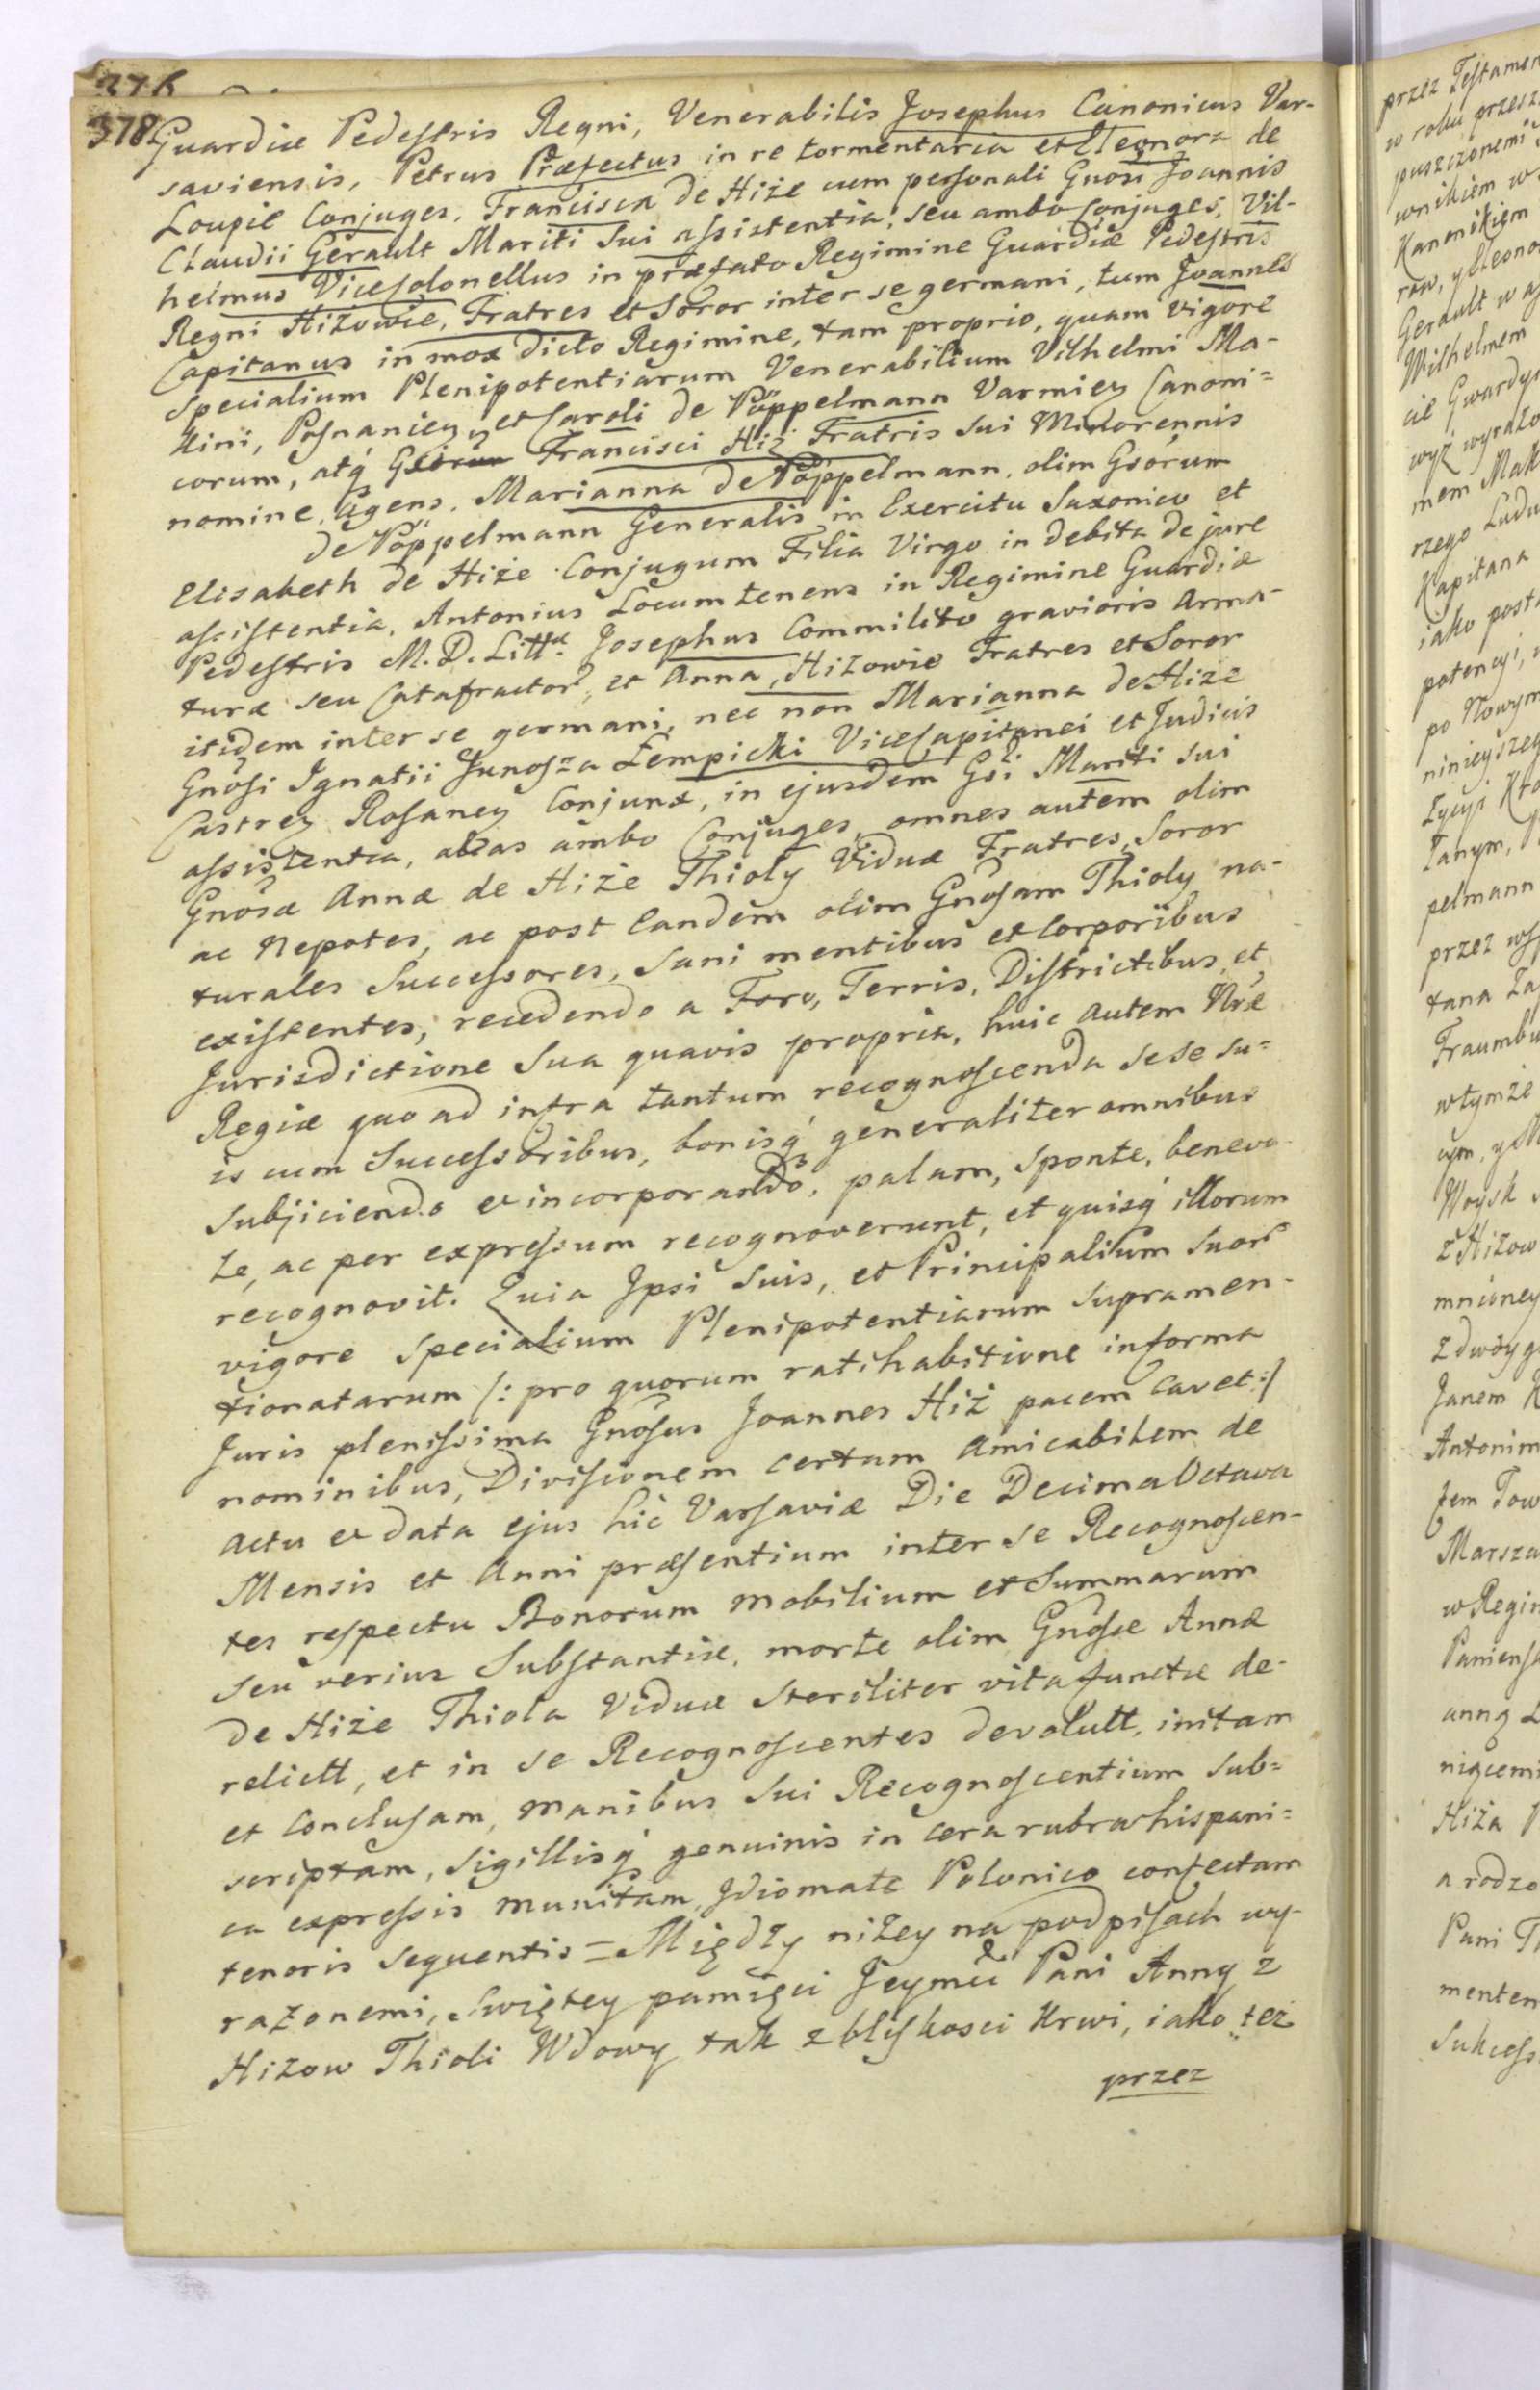 376
378
Guardiæ Pedestris Regni, Venerabilis Josephus Canonicus Var-
saviensis, Petrus Præfectus in re tormentaria et Eleonora de
Loupie Conjuges, Francisca de Hiże cum personali Gnosi Joannis
Claudii Gerault Mariti sui assistentia, seu ambo Conjuges, Vil-
helmus ViceColonellus in præfato Regimine Guardiæ Pedestris
Regni Hiżowie, Fratres et Soror inter se germani, tum Joannes
Capitanus in mox dicto Regimine, tam proprio, quam vigore
specialium Plenipotentiarum Venerabilium Vilhelmi Ma-
kini, Posnanien, et Caroli de Pöppelmann Varmien Canoni=
corum, atq Francisci Hiż Fratris sui Minorennis
nomine agens, Marianna de Pöppelmann, olim Gsorum
de Pöppelmann Generalis in Exercitu Saxonico et
Elisabeth de Hiże Conjugum Filia Virgo in debita de jure
assistentia, Antonius Locumtenens in Regimine Guardiæ
Pedestris M. D. Littæ Josephus Commilito gravioris arma-
turæ seu Catafractor, et Anna, Hiżowie Fratres et Soror
itidem inter se germani, nec non Marianna de Hiże
Gnosi Ignatii Junosza Łempicki ViceCapitanei et Judicis
Castren Rosanen Conjunx, in ejusdem Gsi Mariti sui
assistentia, alias ambo Conjuges, omnes autem olim
Gnosæ Annæ de Hiże Thioly Viduæ Fratres, Soror
ac Nepotes, ac post eandem olim Gnosam Thioly na-
turales Successores, sani mentibus et corporibus
existentes, recedendo a Foro, Terris, Districtibus et
Jurisdictione sua quavis propria, huic autem Nræ
Regiæ quo ad infra tantum recognoscenda sese su=
is cum Successoribus, bonisq generaliter omnibus
subjiciendo et incorporando, palam, sponte, benevo-
le, ac per expressum recognoverunt, et quisq illorum
recognovit. Quia Ipsi suis, et Principalium suor
vigore specialium Plenipotentiarum supramen-
tionatarum /: pro quorum ratihabitione in forma
Juris plenissima Gnosus Joannes Hiż pacem cavet :/
nominibus, Divisionem certam amicabilem de
actu et data ejus hic Varsaviæ Die Decima Octava
Mensis et Anni præsentium inter se Recognoscen-
tes respectu Bonorum mobilium et Summarum
seu verius Substantiæ, morte olim Gnosæ Annæ
de Hiże Thiola Viduæ steriliter vita functæ de-
relictt, et in se Recognoscentes devolutt, initam
et conclusam, manibus sui Recognoscentium sub=
scriptam, sigillisq genuinis in cera rubra hispani=
ca expressis munitam, Idiomate Polonico confectam
tenoris sequentis = Między niżey na podpisach wy-
rażonemi, Swiętey pamięci Jeymci Pani Anny z
Hiżow Thioli Wdowy tak z bliskosci krwi, iako też
przez
przez Testamen
w roku przesz
puszczonemi
wnikiem w
Kanonikiem
row, y Eleono
Gerault w as
Wilhelmem
cie Gwardyi
wyż wyrażo
mem Mak
rzego Ludw
Kapitana
iako post
potencyi,
po Nowym
ninieyszeg
Łycyi Kro
Janym, P
pelmann
przez wsp
tana Za
Fraumbu
w tymże
cym, y M
Woysk
z Hiżow
mnioney
z dwoyg
Janem K
Antonim
fem Tow
Marsza
w Regim
Paniens
anną Ł
nięcemi
Hiża P
a rodzo
Pani Th
menten
Sukcess